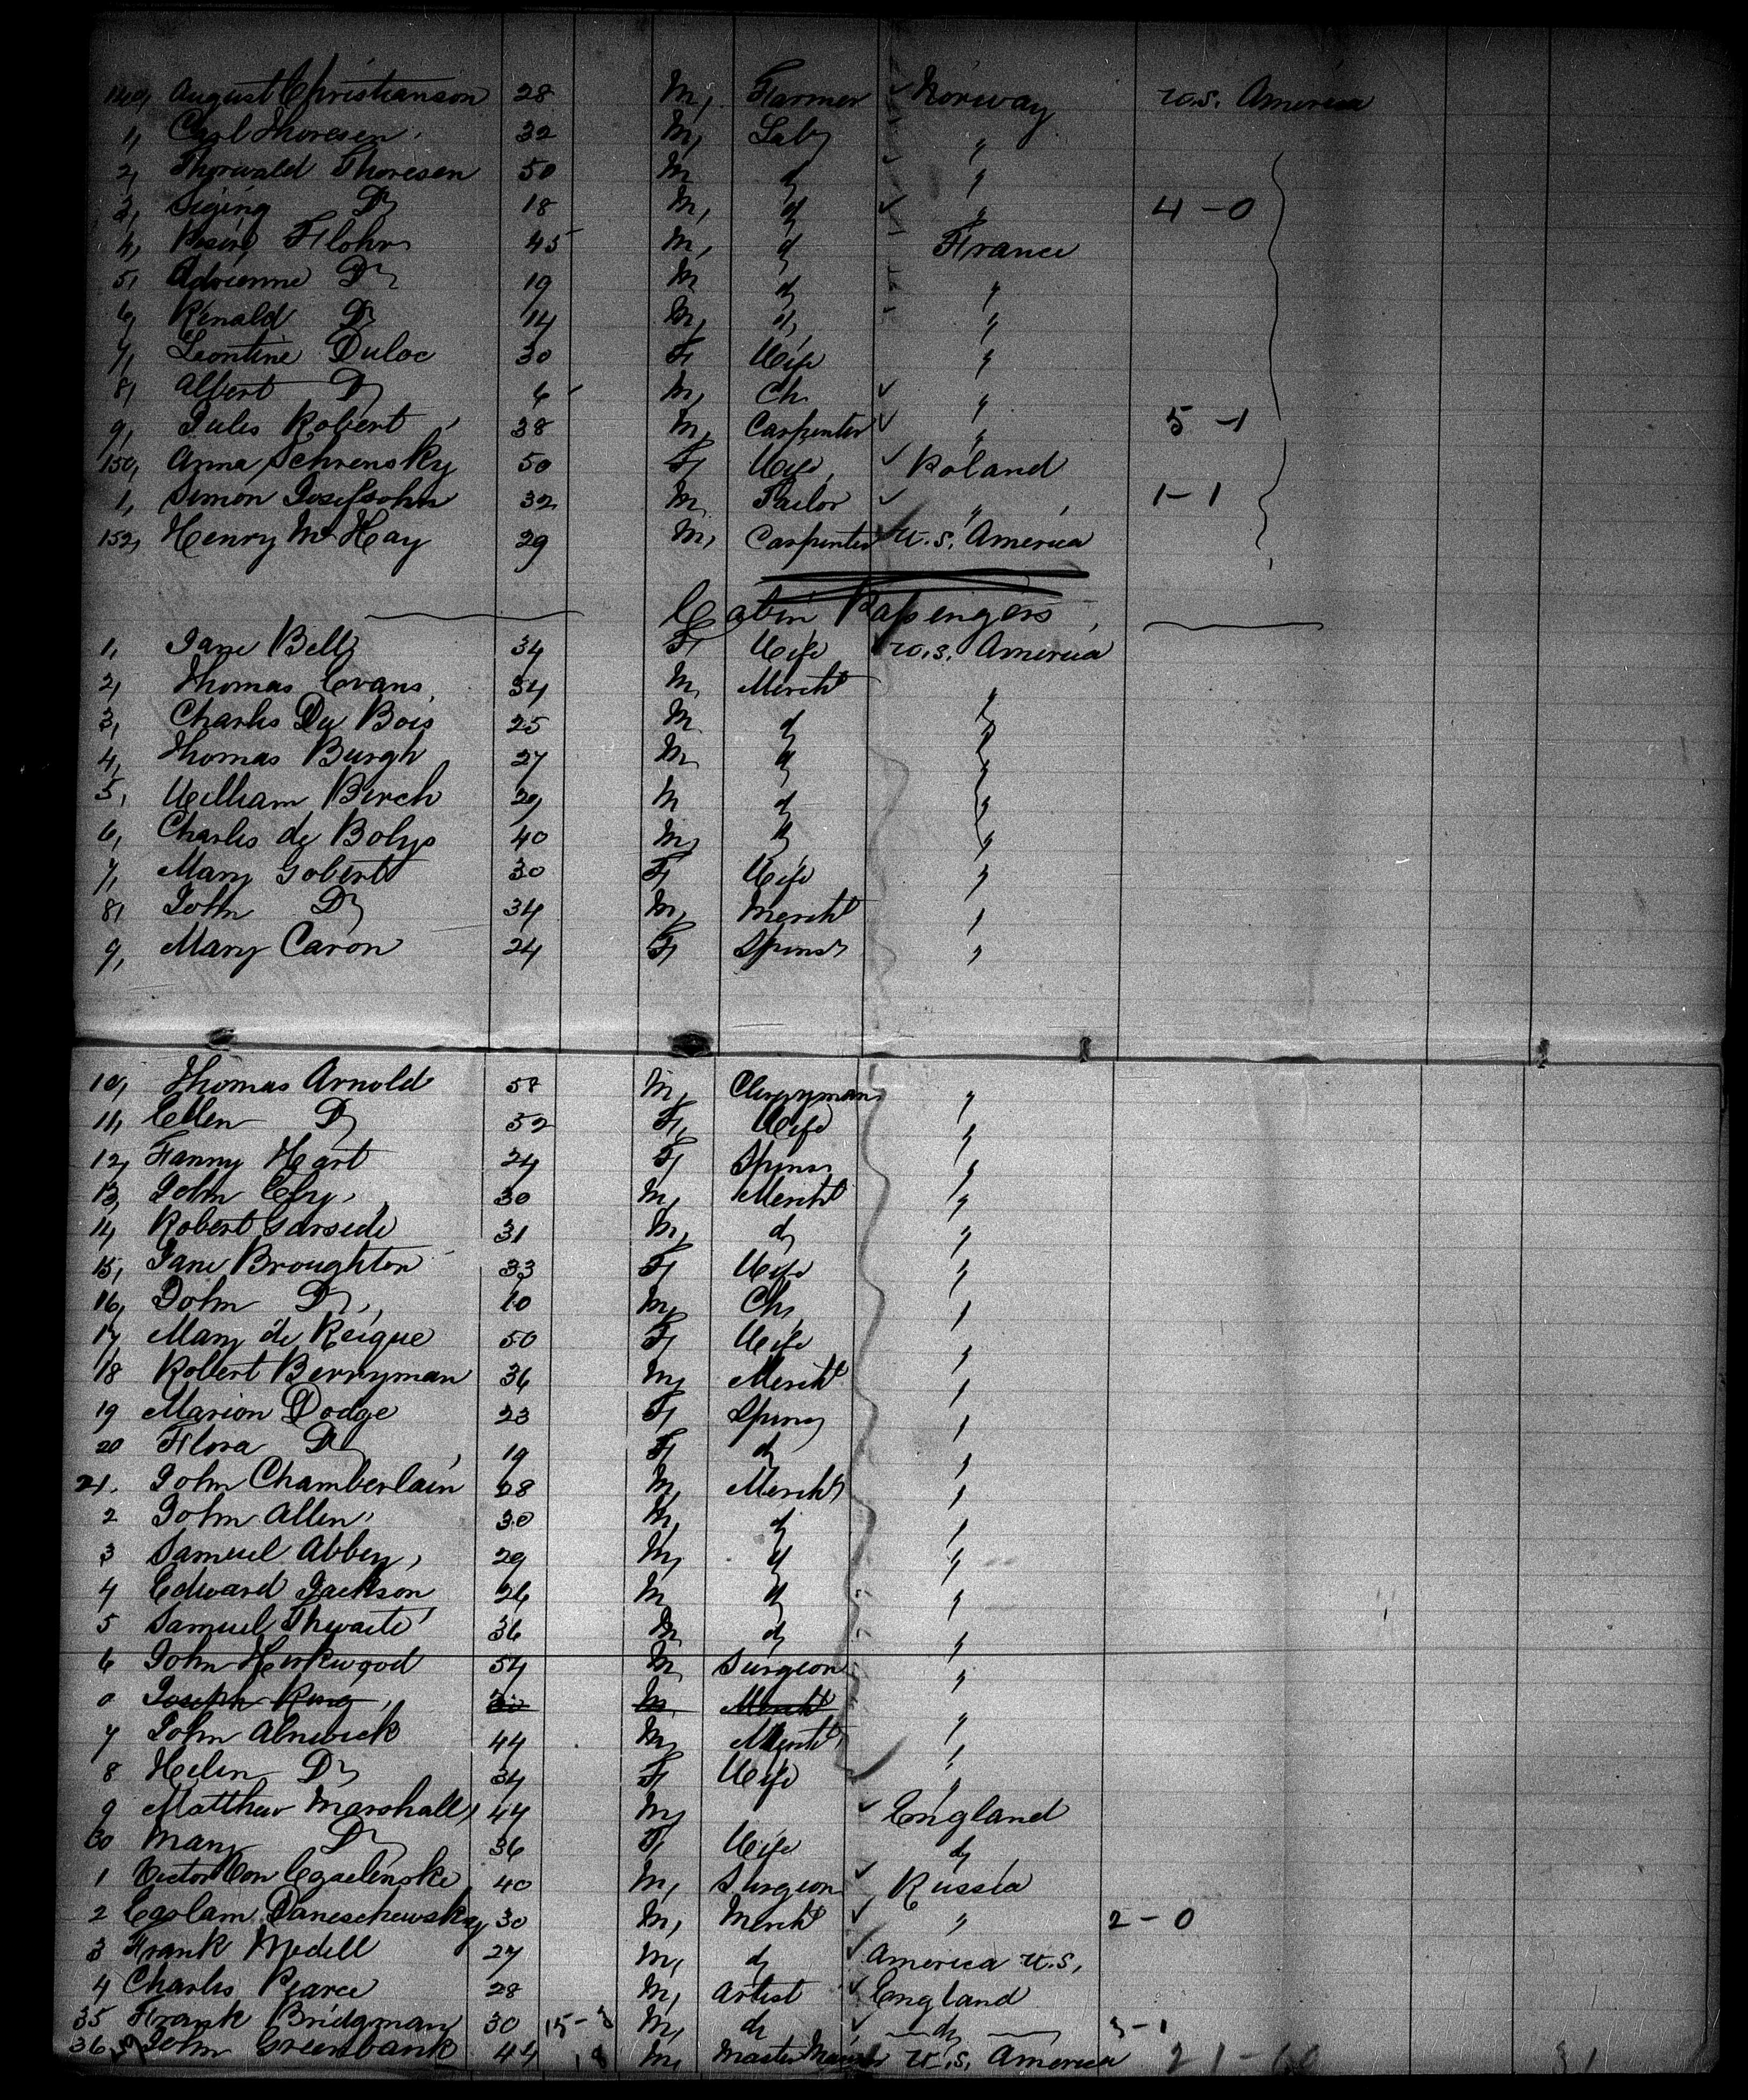 140, August Christianson 28 M, Farmer ✓ Norway U.S. America
1, Carl Thoresen 32 M, Lab "
2, Thorwald Thoresen 50 M d "
3, D 18 M, d " 4-0
4, Flohr 45 M, d France
5, Adrienne D 19 M d "
6, Rinald D 14 M, d "
7, Leontine Duloc 30 F Wife "
8, Albert D 6 M, Ch "
9, Jules Robert 38 M, Carpenter " 5-1
150, Anna Schrensky 50 F Wife Poland
1, Simon Josefsohn 32 M, Tailor " 1-1
152, Henry McKay 29 M, Carpenter U.S. America
Cabin Passengers
1, Jane Bell 34 F Wife U.S. America
2, Thomas Evans 34 M, Mercht "
3, Charles Du Bois 25 M d "
4, Thomas Burgh 27 M d "
5, William Birch 29 M d "
6, Charles de Bolys 40 M, d "
7, Mary Gobert 30 F Wife "
8, John D 34 M, Mercht "
9, Mary Caron 24 F Spins "
10, Thomas Arnold 58 M, Clergyman "
11, Ellen D 52 F, Wife "
12, Fanny Hart 24 F Spins "
13, John 30 M, Mercht "
14, Robert Garside 31 M, d "
15, Jane Broughton 33 F Wife "
16, John D 10 M, Ch, "
17, Mary de Reique 50 F Wife "
18 Robert Berryman 36 M, Mercht "
19 Marion Dodge 23 F Spins "
20 Flora D 19 F d "
21. John Chamberlain 28 M, Mercht "
2 John Allen 30 M, d "
3 Samuel Abbey 29 M, d "
4 Edward Jackson 26 M d "
5 Samuel Thwaite 36 M d "
6 John Hirkwood 54 M Surgeon "
0 Joseph King M Mercht "
7 John Alnwick 44 M, Mercht "
8 Helen D 34 F Wife "
9 Matthew Marshall 44 M, England
30 Mary D 36 F Wife d
1 Victor Von 40 M, Surgeon Russia
2 Caslam Daneschewsky 30 M, Mercht " 2-0
3 Frank Medill 27 M, d America U.S.
4 Charles Pearce 28 M, Artist England
35 Frank Bridgman 30 15-3 M, d d 3-1
36 John Greenbank 44 18 M, Master U.S. America 21- 31